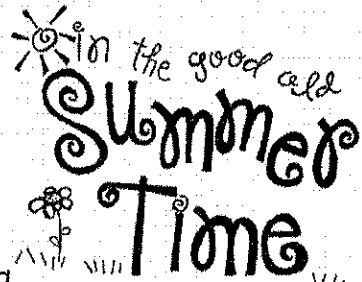 in the good old
Summer
Time